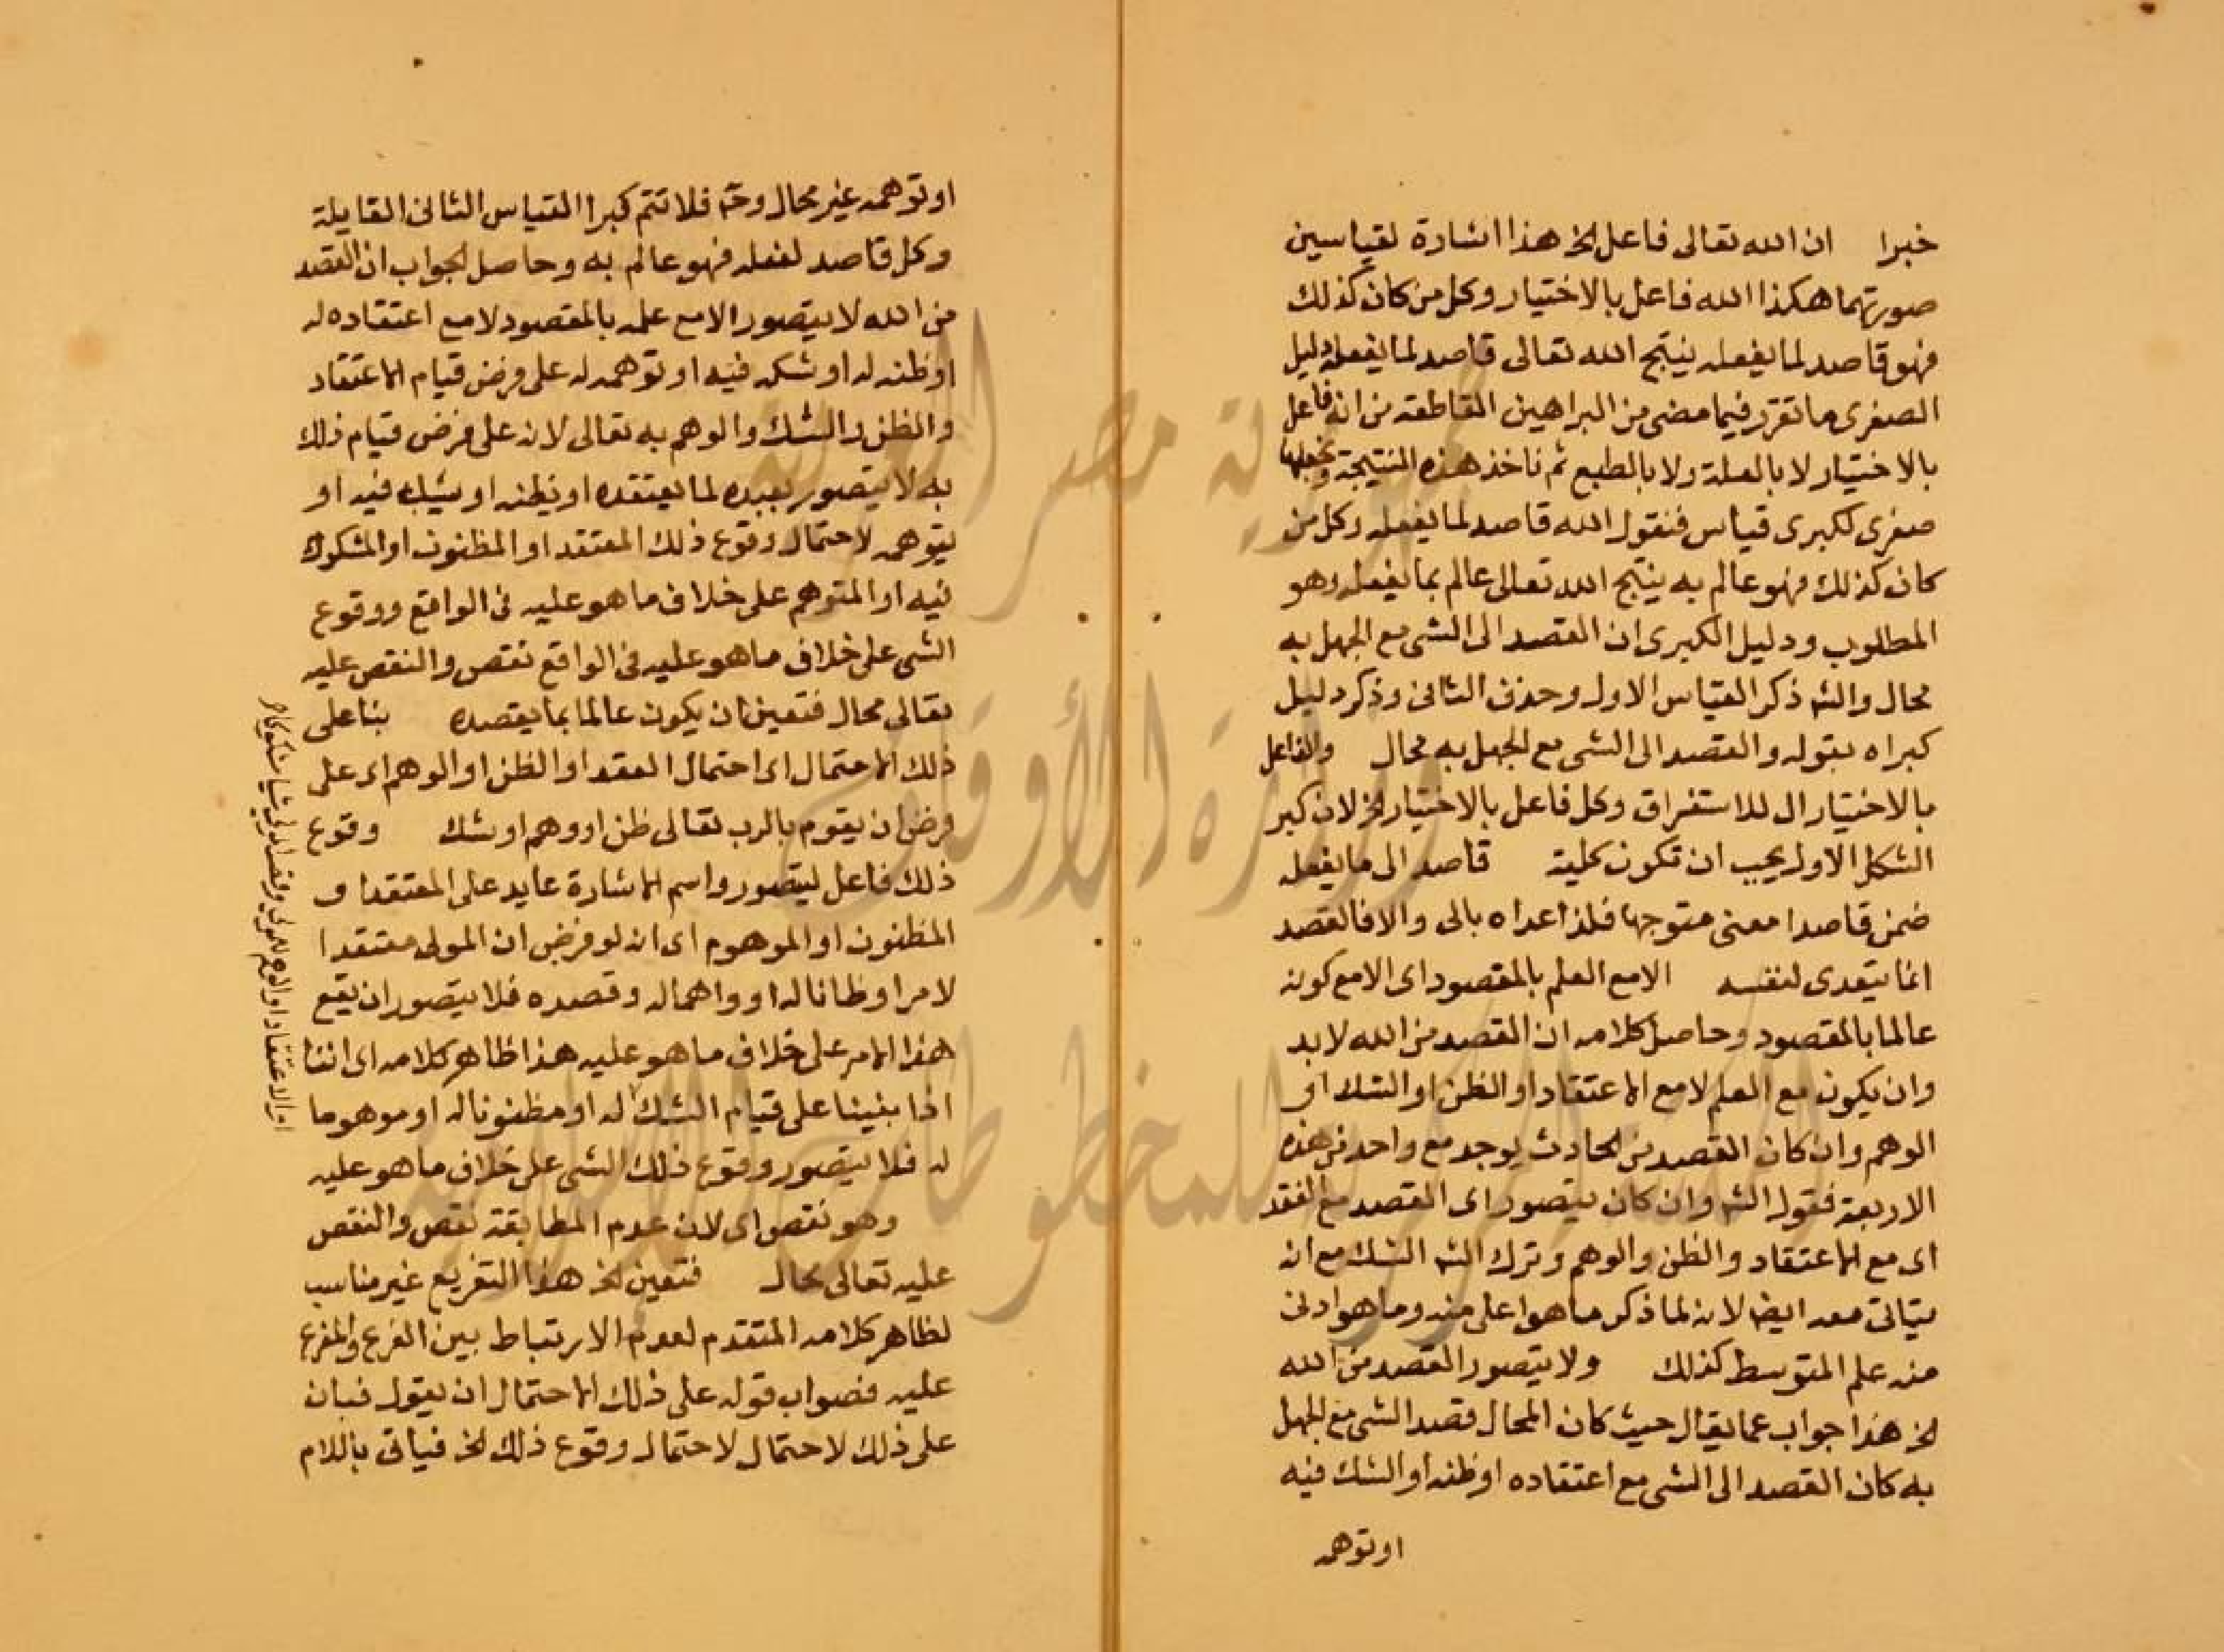 خبرا ان الله تعالى فاعل الخ هذا اشارة لقياسين
صورتهما هكذا الله فاعل بالاختيار وكل من كان كذلك
فهو قاصد لما يفعله ينتج الله تعالى قاصد لما يفعله دليل
الصغرى ما تقرر فيما مضى من البراهين القاطعة من انه فاعل
بالاختيار لا بالعلة ولا بالطبع ثم ناخذ هذه النتيجة ونجعلها
صغرى لكبرى قياس فنقول الله قاصد لما يفعله وكل من
كان كذلك فهو عالم به ينتج الله تعالى عالم بما يفعله وهو
المطلوب ودليل الكبرى ان القصد الى الشى مع الجهل به
محال والش ذكر القياس الاول وحذف الثانى وذكر دليل
كبراه بقوله والقصد الى الشى مع الجهل به محال والفاعل
بالاختيار ال للاستغراق وكل فاعل بالاختيار الخ لان كبر
الشكل الاول يجب ان تكون كلية قاصد الى ما يفعله
ضمن قاصدا معنى متوجها فلذا عداه بالى والا فالقصد
انما يتعدى لنفسه الا مع العلم بالمقصود اى الا مع كونه
عالما بالمقصود وحاصل كلامه ان القصد من الله لا بد
وان يكون مع العلم لا مع الاعتقاد او الظن او الشك او
الوهم وان كان القصد من الحادث يوجد مع واحد من هذه
الاربعة فقول الش وان كان يتصور اى القصد مع العقد
اى مع الاعتقاد والظن والوهم وترك الش الشك مع انه
يتاتى معه ايضا لانه لما ذكر ما هو اعلى منه وما هو ادنى
منه علم المتوسط كذلك ولا يتصور القصد من الله
الخ هذا جواب عما يقال حيث كان المحال قصد الشى مع الجهل
به كان القصد الى الشى مع اعتقاده او ظنه او الشك فيه
او توهمه
او توهمه غير محال وحـ فلا تتم كبرا القياس الثانى القايلة
وكل قاصد لفعله فهو عالم به وحاصل الجواب ان القصد
من الله لا يتصور الا مع علمه بالمقصود لا مع اعتقاده له
او ظنه له او شكه فيه او توهمه له على فرض قيام الاعتقاد
والظن والشك والوهم به تعالى لانه على فرض قيام ذلك
به لا يتصور لما يعتقده او يظنه او يشك فيه او
يتوهمه لاحتمال وقوع ذلك المعتقد او المظنون او المشكوك
فيه او المتوهم على خلاف ما هو عليه فى الواقع ووقوع
الشى على خلاف ما هو عليه فى الواقع نقص والنقص عليه
تعالى محال فتعين ان يكون عالما بما يقصده بنا على
ذلك الاحتمال اى احتمال العقد او الظن او الوهم اى على
فرض ان يقوم بالرب تعالى ظن او وهم او شك وقوع
ذلك فاعل ليتصور واسم الاشارة عايد على المعتقد او
المظنون او الموهوم اى انه لو فرض ان المولى معتقدا
لامر او ظانا له او واهما له وقصده فلا يتصور ان يقع
هذا الامر على خلاف ما هو عليه هذا ظاهر كلامه اى اننا
اذا بنينا على قيام الشك له او مظنونا له او موهوما
له فلا يتصور وقوع ذلك الشى على خلاف ما هو عليه
وهو نقص اى لان عدم المطابقة نقص والنقص
عليه تعالى محال فتعين الخ هذا التفريع غير مناسب
لظاهر كلامه المتقدم لعدم الارتباط بين الفرع والمفرع
عليه فصواب قوله على ذلك الاحتمال ان يقول فبان
على ذلك لاحتمال لاحتمال وقوع ذلك الخ فياتى باللام
او الاعتقاد او الوهم للمولى وقصد المولى شيا